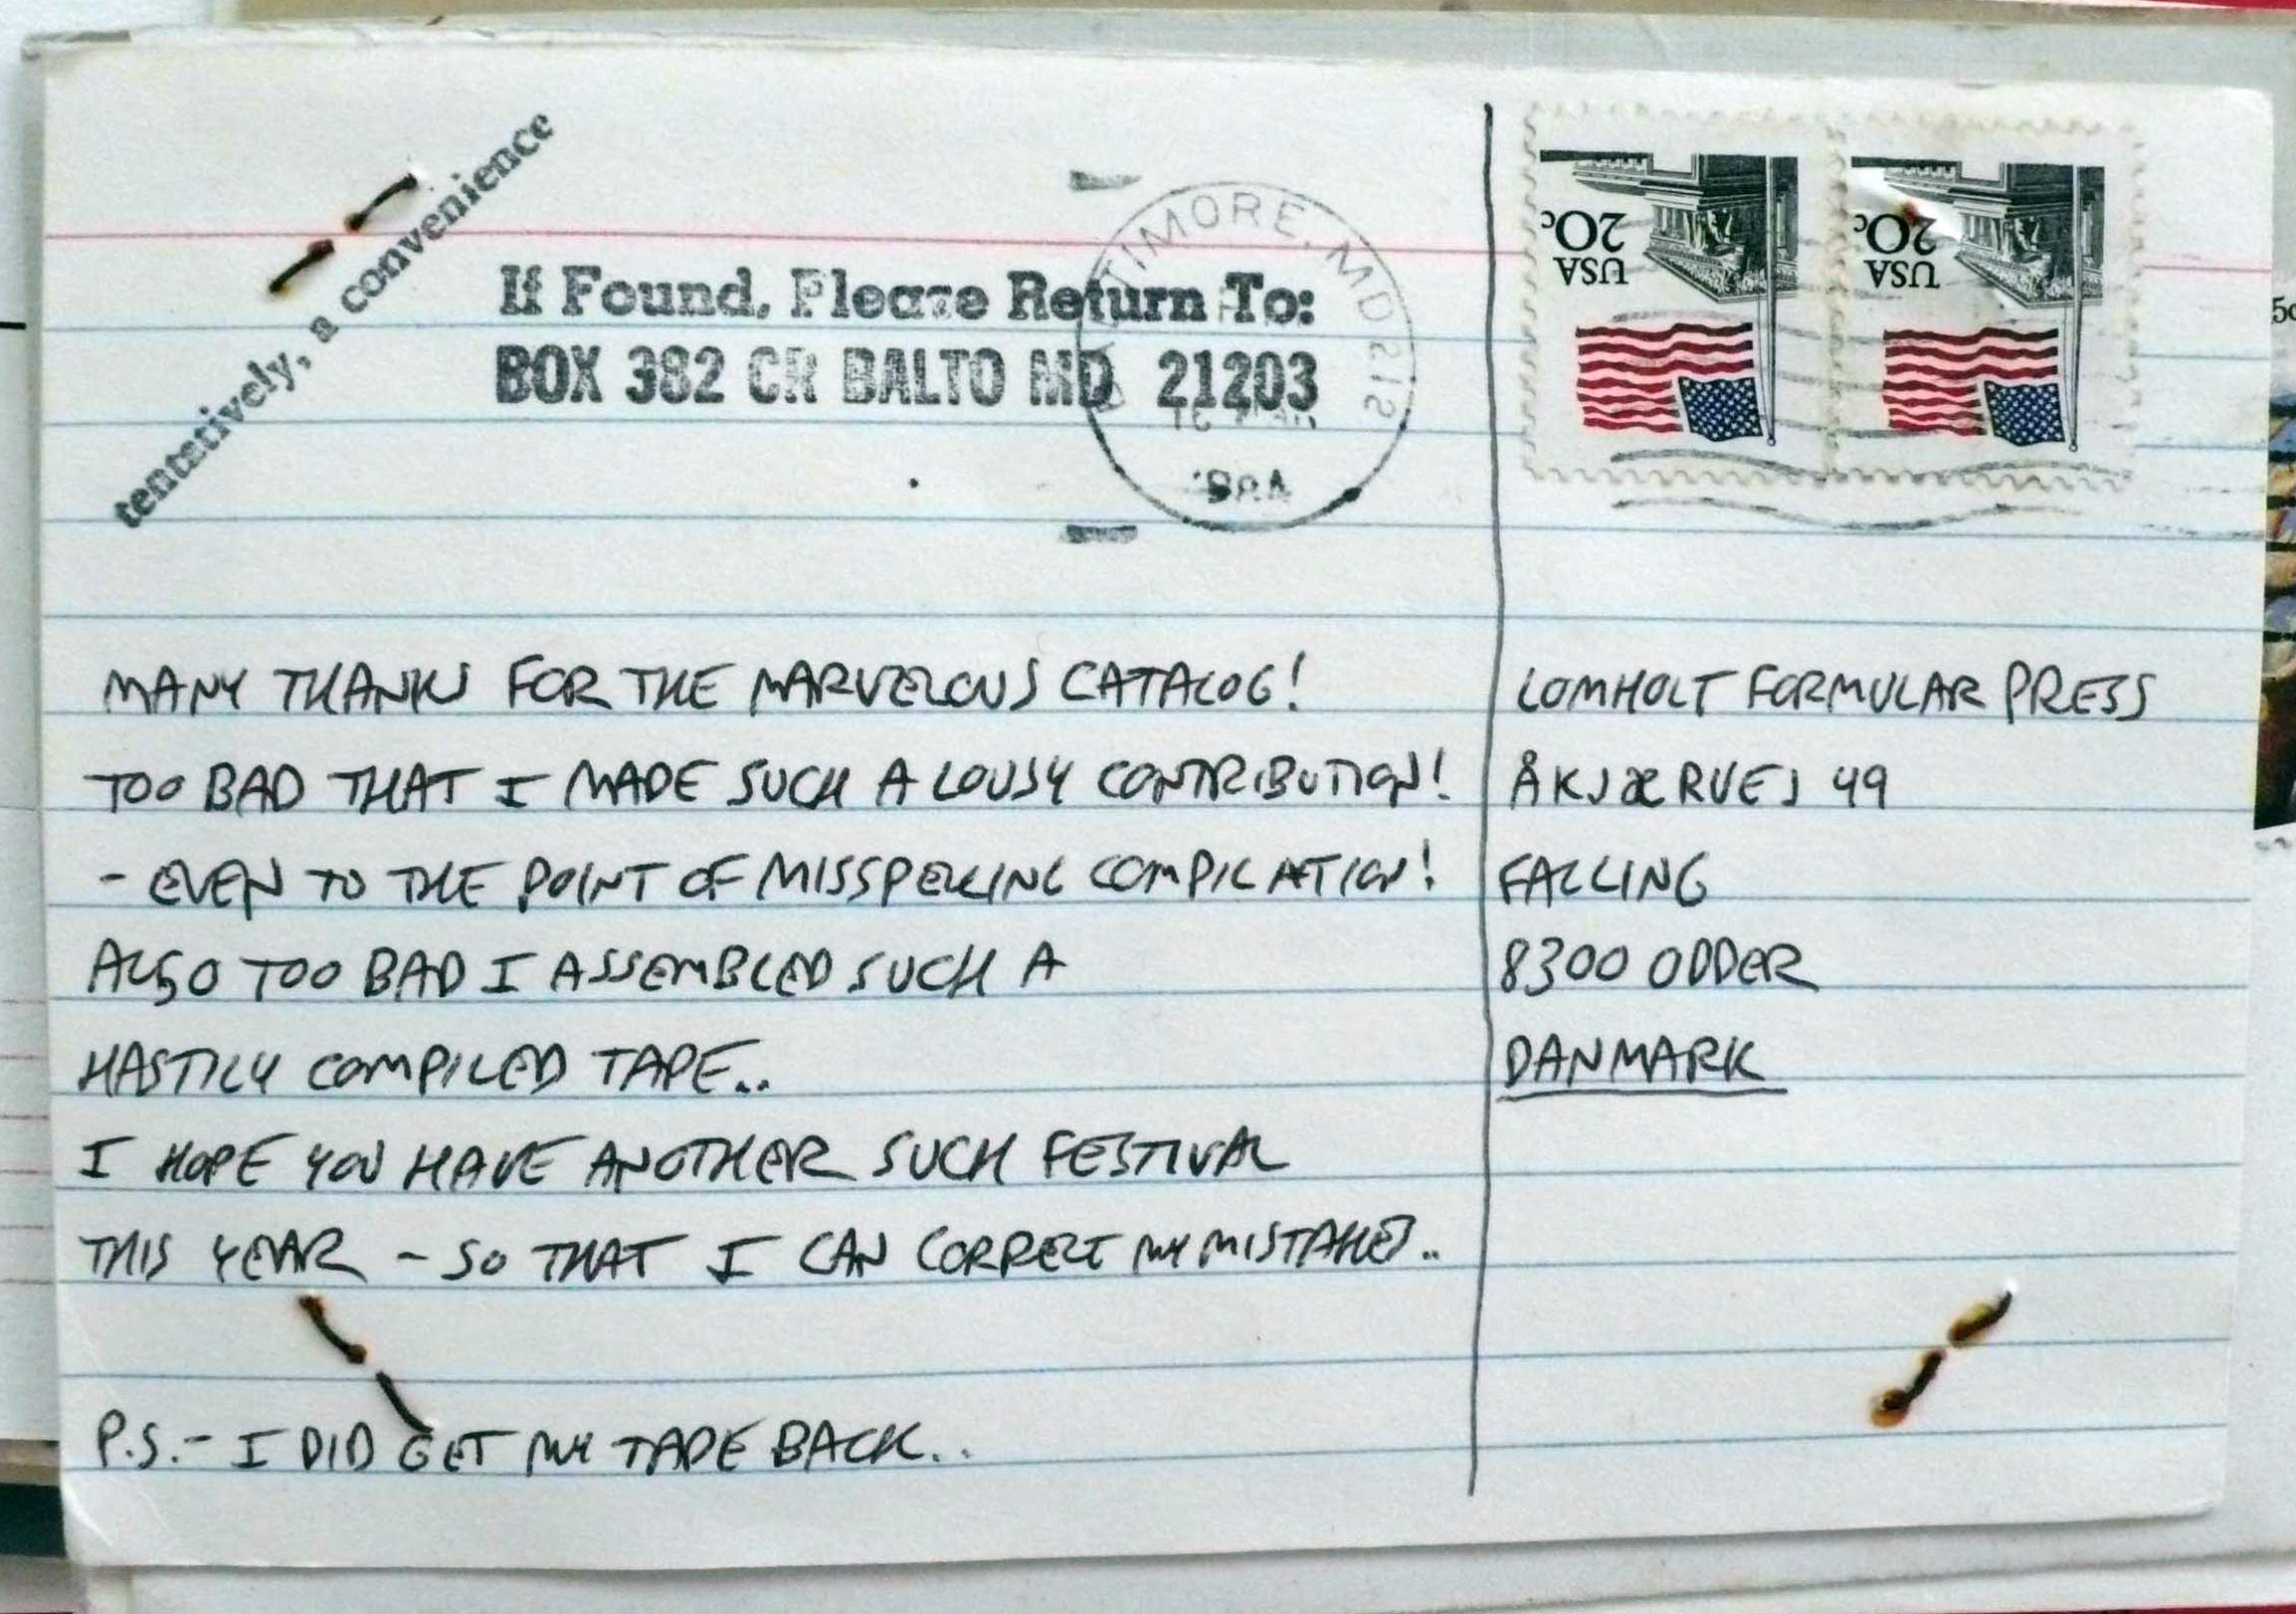 tentatively, a convenience
If Found, Please Return To:
BOX 382 CR BALTO MD 21203
BALTIMORE, MD 212
USA 20c
USA 20c
MANY THANKS FOR THE MARVELOUS CATALOG!
TOO BAD THAT I MADE SUCH A LOUSY CONTRIBUTION!
- EVEN TO THE POINT OF MISSPELLING COMPILATION!
ALSO TOO BAD I ASSEMBLED SUCH A
HASTILY COMPILED TAPE..
I HOPE YOU HAVE ANOTHER SUCH FESTIVAL
THIS YEAR - SO THAT I CAN CORRECT MY MISTAKES..
P.S. - I DID GET MY TAPE BACK..
LOMHOLT FORMULAR PRESS
ÅKJÆRVEJ 49
FALLING
8300 ODDER
DANMARK